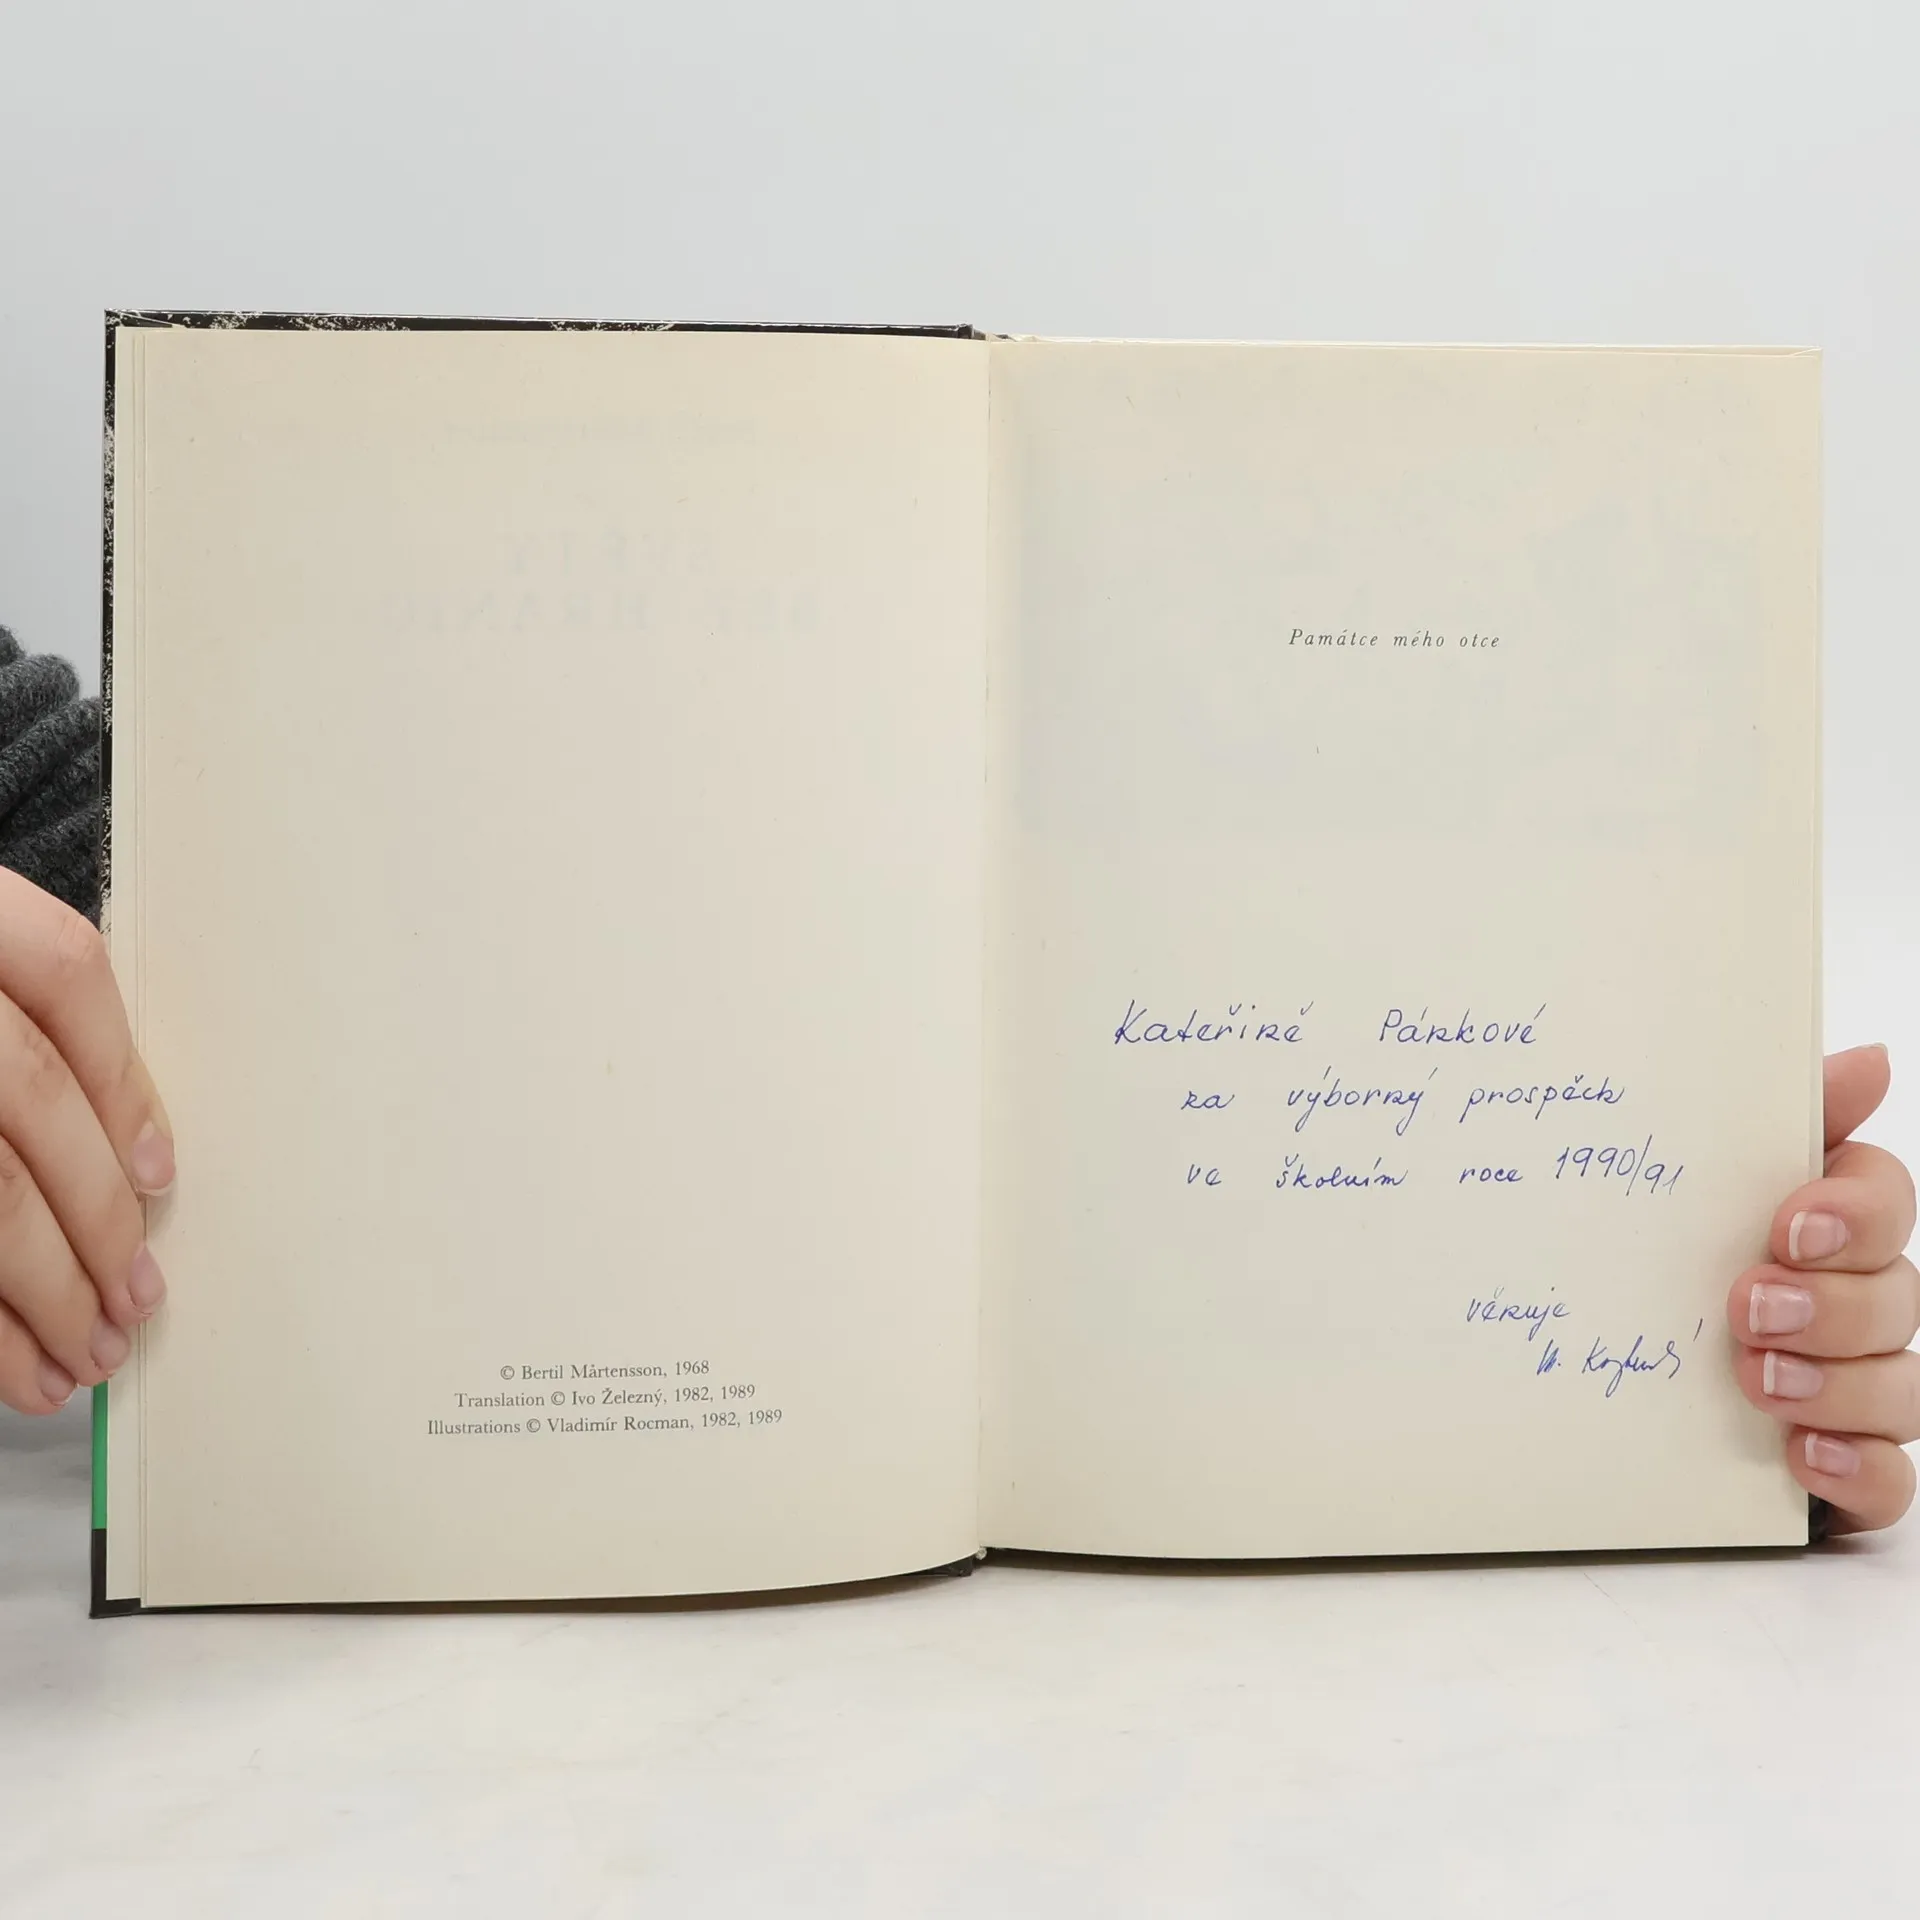 SVĚTY
BEZ HRANIC
© Bertil Mårtensson, 1968
Translation © Ivo Železný, 1982, 1989
Illustrations © Vladimír Rocman, 1982, 1989
Památce mého otce
Kateřině Pánkové
za výborný prospěch
ve školním roce 1990/91
věnuje